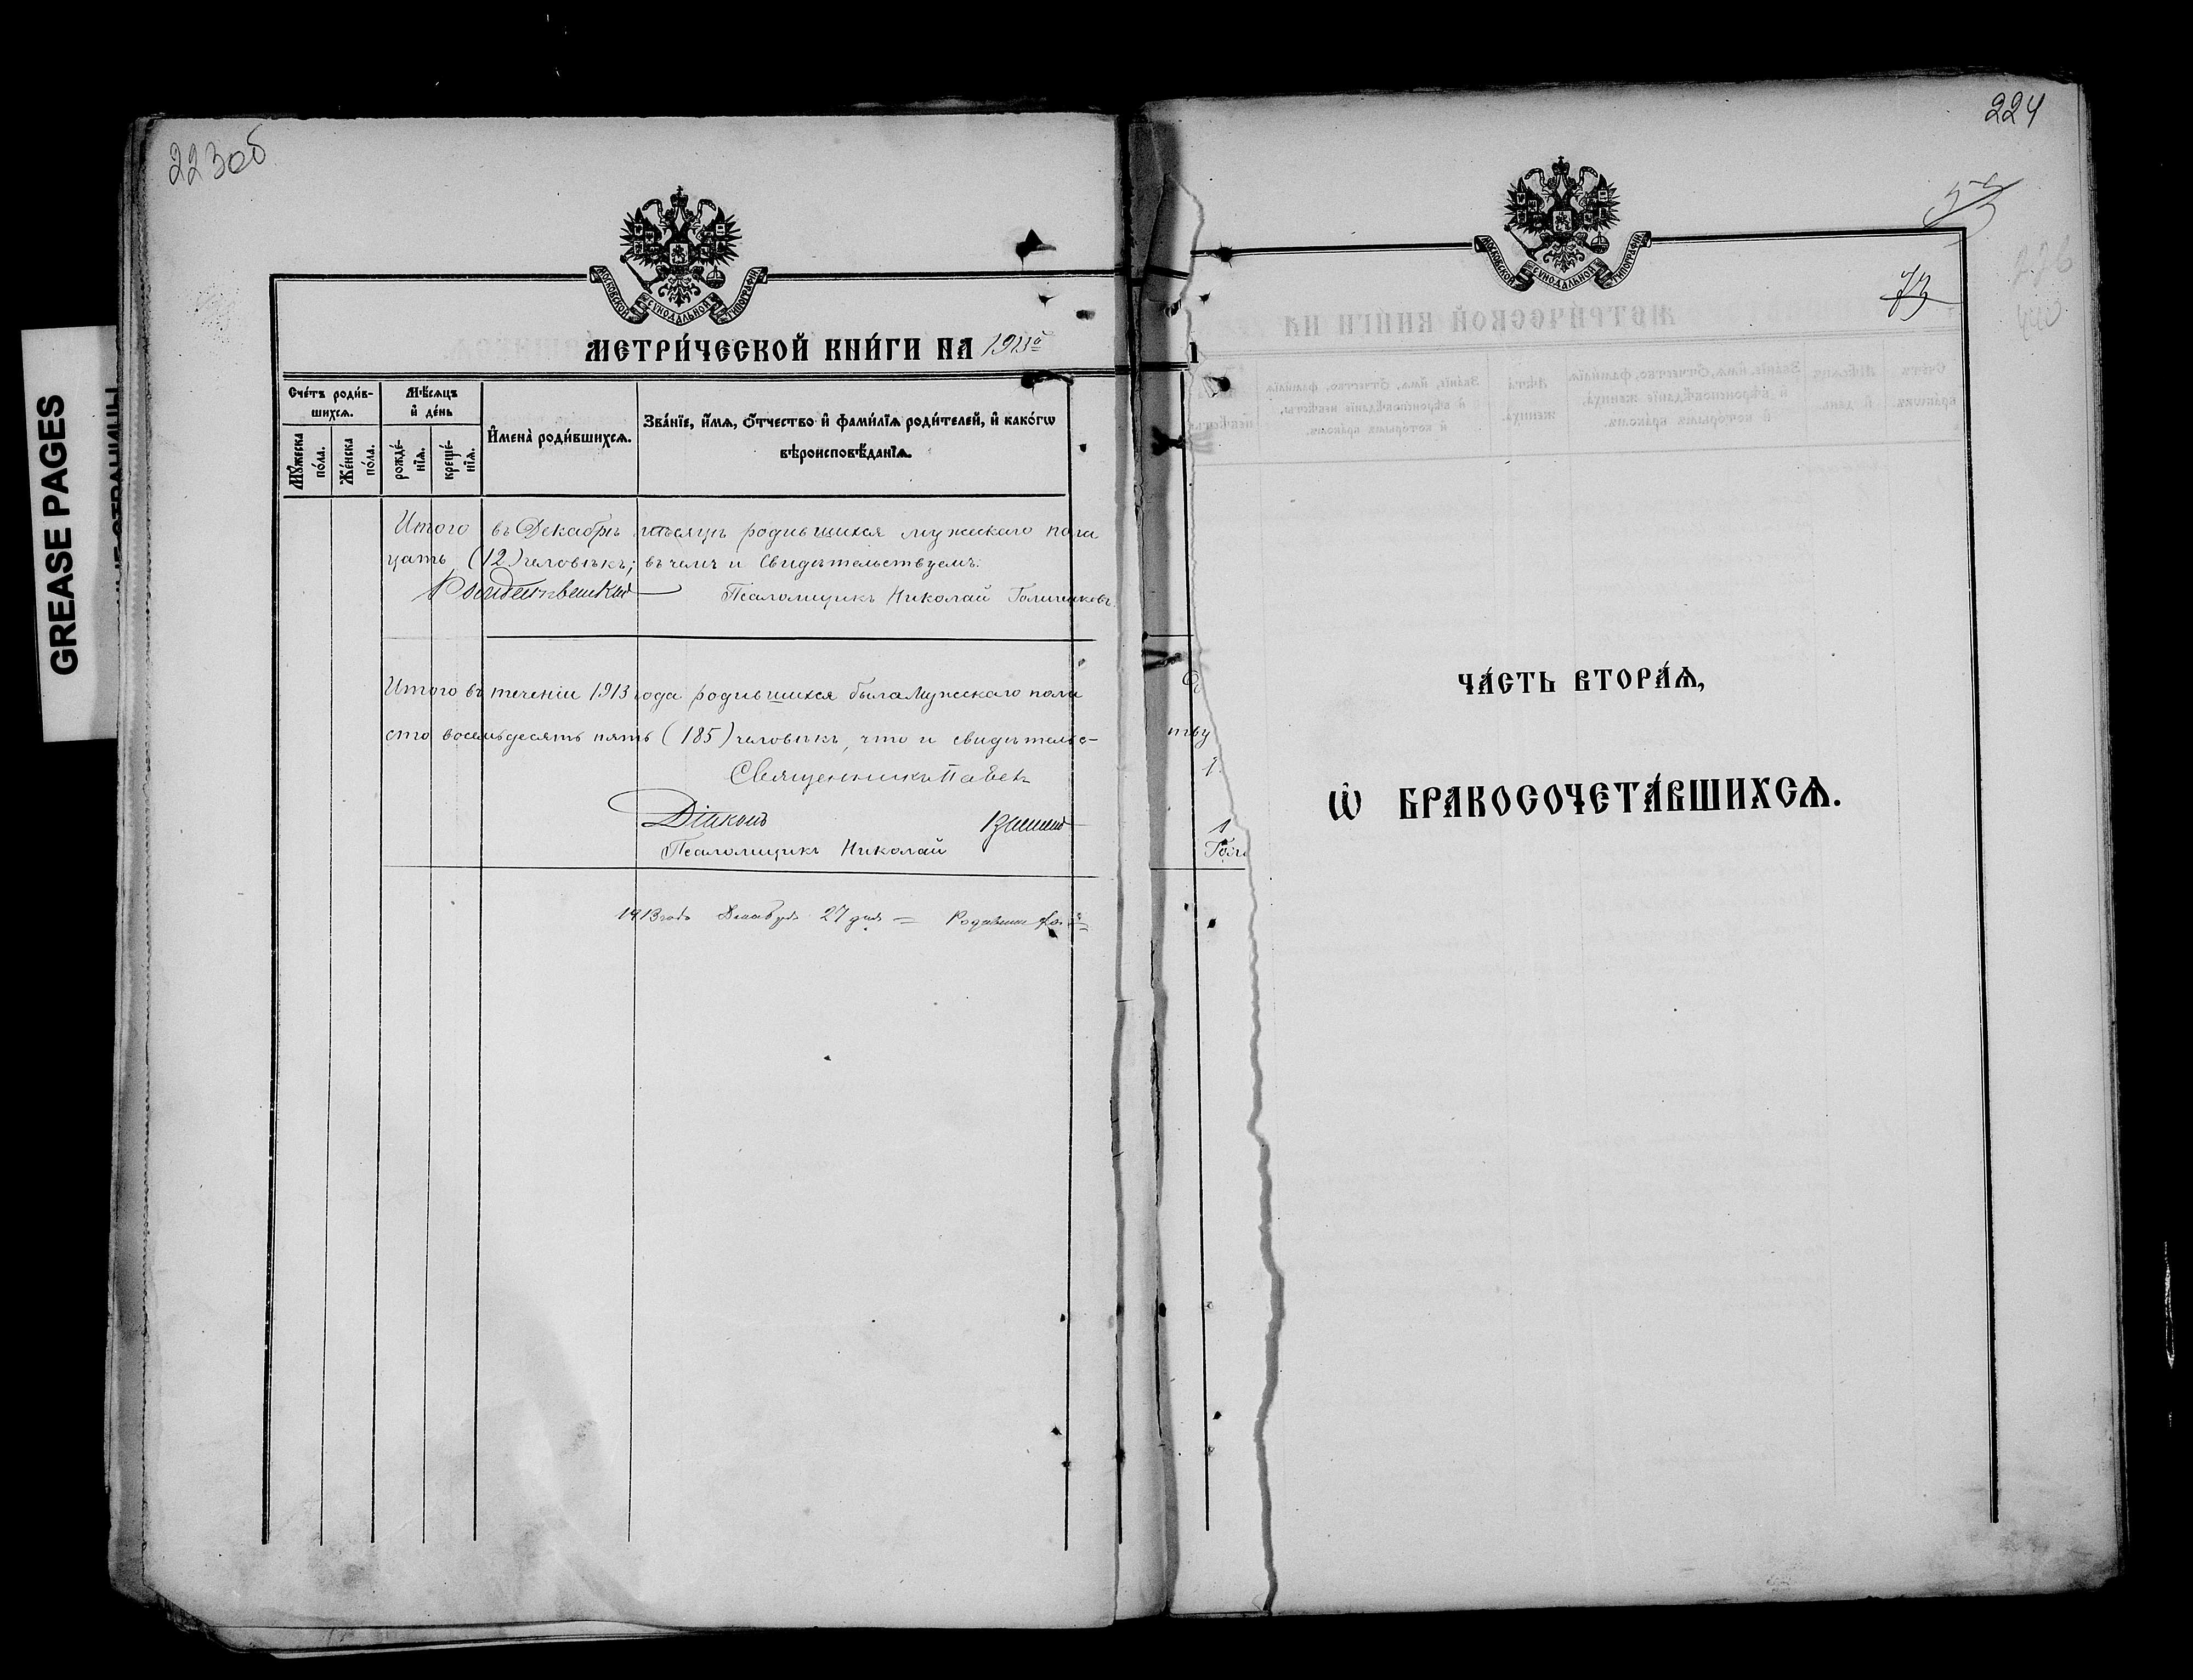 223об
МОСКОВСКОЙ СѴНОДАЛЬНОЙ ТИПОГРАФІИ
МЕТРИ́ЧЕСКОЙ КНИ́ГИ НА 1913й
Сче́тъ роди́вшихсѧ.
Мꙋ́жеска по́ла.
Же́нска по́ла.
Мѣ́сѧцъ и҆ де́нь
рожде́нїѧ.
креще́нїѧ.
И҆мена̀ роди́вшихсѧ.
Зва́нїе, и҆́мѧ, ѻ҆́тчество и҆ фами́лїѧ роди́телей, и҆ како́гѡ
вѣроисповѣ́данїѧ.
Итого въ Декабрѣ мѣсяцѣ родившихся мужскаго пола
цать (12) человѣкъ; въ чемъ и свидѣтельствуемъ:
Псаломщикъ Николай
Итого въ теченіи 1913 года родившихся было мужскаго пола
сто восемьдесять пять (185) человѣкъ, что и свидѣтельс-
Священникъ Павелъ
Діаконъ
Псаломщикъ Николай
1913 года Декабря 27 дня =
224
73
МОСКОВСКОЙ СѴНОДАЛЬНОЙ ТИПОГРАФІИ
ЧА́СТЬ ВТОРА́Ѧ,
Ѡ҆ БРАКОСОЧЕТА́ВШИХСѦ.
GREASE PAGES